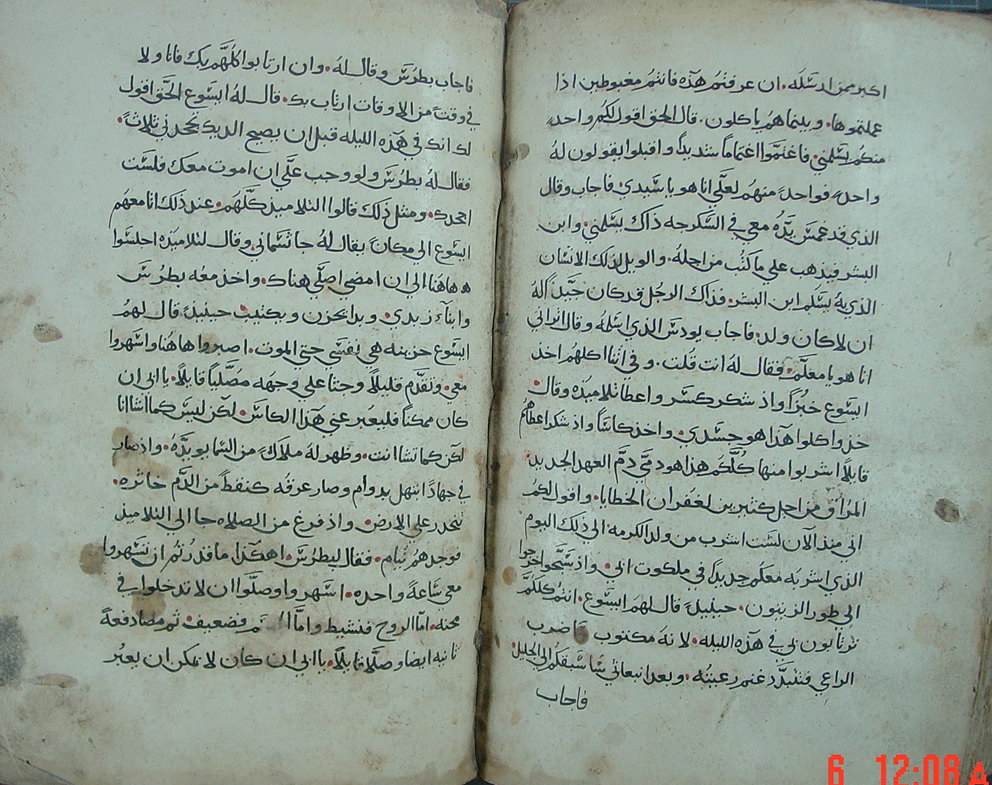 اكبر ممن ارسله. ان عرفتم هذه فانتم مغبوطين اذا
عملتموها. وبينما هم ياكلون. قال الحق اقول لكم واحد
منكم يسلمني فاغتموا اغتماماً شديداً واقبلوا يقولون له
واحد فواحد منهم لعلي انا هو يا سيدي. فاجاب وقال
الذي قد غمس يده معي في السكرجه ذاك يسلمني. وابن
البشر فيذهب علي ما كتب من اجله. والويل لذلك الانسان
الذي به يسلم ابن البشر. فذاك الرجل قد كان جيداً له
ان لا كان ولد. فاجاب يودس الذي اسلمه وقال اتراني
انا هو يا معلم. فقال له انت قلت. وفي اثنا اكلهم اخذ
ايسوع خبزاً واذ شكر كسر واعطا تلاميذه وقال
خذوا كلوا هذا هو جسدي. واخذ كاساً واذ شكر اعطاهم
قايلاً اشربوا منها كلكم هذا هو دمي دم العهد الجديد
المراق من اجل كثيرين لغفران الخطايا. واقول لكم
اني منذ الآن لست اشرب من ولد الكرمه الي ذلك اليوم
الذي اشربه معكم جديداً في ملكوت ابي. واذ سبحوا خرجوا
الي طور الزيتون. حينيذ قال لهم ايسوع. انتم كلكم
ترتابون بي في هذه الليله. لانه مكتوب اضرب
الراعي فتتبدد غنم رعيته. وبعد انبعاثي سأسبقكم الي الجليل.
فاجاب
فاجاب بطرس وقال له. وان ارتابوا كلهم بك فانا ولا
في وقت من الاوقات ارتاب بك. قال له ايسوع الحق اقول
لك انك في هذه الليله قبل ان يصيح الديك تجحدني ثلاثً.
فقال له بطرس ولو وجب علي ان اموت معك فلست
اجحدك. ومثل ذلك قالوا التلاميذ كلهم. عند ذلك اتا معهم
ايسوع الي مكان يقال له جاثسماني وقال لتلاميذه اجلسوا
هاهنا الي ان امضي اصلي هناك. واخذ معه بطرس
وابنآء زبدي. وبدا يحزن ويكتيب حينيذ قال لهم
ايسوع حزينه هي نفسي حتي الموت. اصبروا هاهنا واسهروا
معي. وتقدم قليلاً وجثا علي وجهه مصلياً قايلاً. يا ابي ان
كان ممكناً فليعبر عني هذا الكاس. لكن ليس كما اشا انا
لكن كما تشا انت. وظهر له ملاك من السما يويده. واذ صاب
في جهاد ابتهل بدوام وصار عرقه كنقط من الدم خاثره.
تنحدر علي الارض. واذ فرغ من الصلاه جا الي التلاميذ
فوجدهم نيام. فقال لبطرس. اهكذا ما قدرتم ان تسهروا
معي ساعة واحده. اسهروا وصلوا ان لا تدخلوا في
محنه. اما الروح فنشيط واما فضعيف. ثم مضا دفعة
ثانيه ايضا وصلا قايلاً. يا ابي ان كان لا يمكن ان يعبر